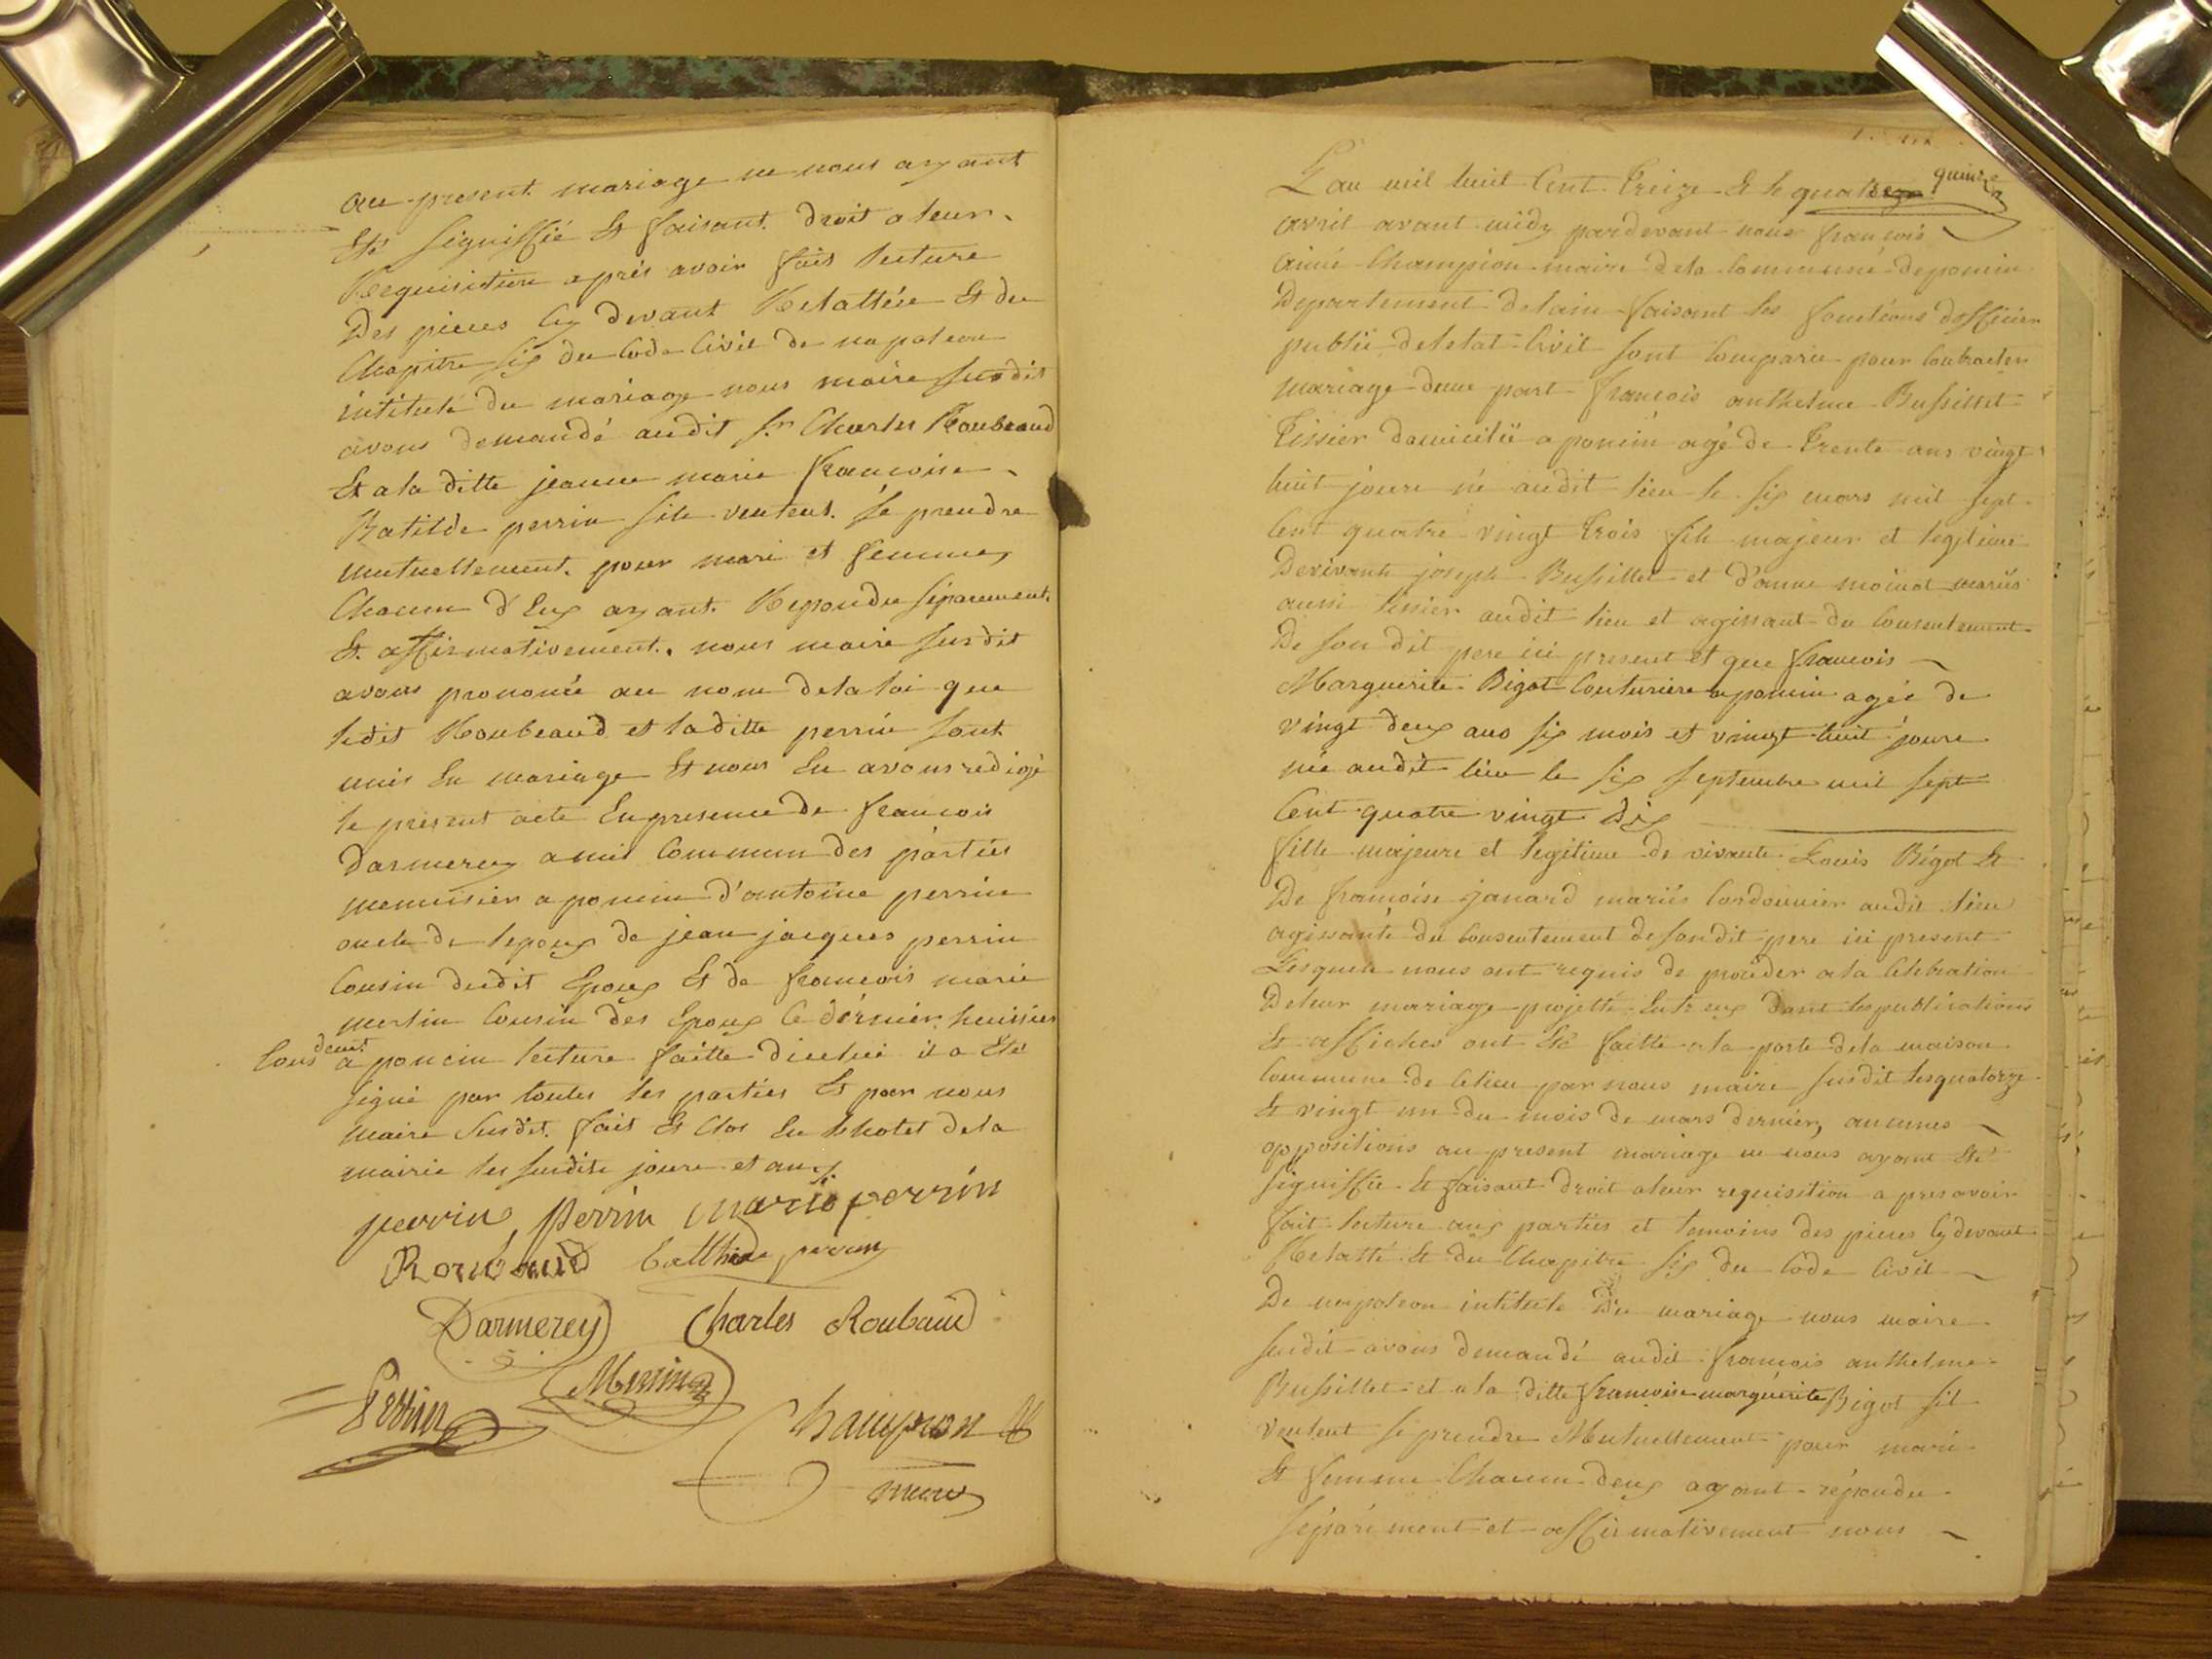 au present mariage ne nous ayant
Eté signiffié Et faisant droit a leur
Requisition après avoir fait lecture
Des pieces cy devant Relattée Et du
Chapitre six du Code Civil de napoleon
intitulé du mariage nous maire susdit
avons demandé audit sr Charles Roubeaud
Et a la ditte jeanne marie francoise
Batilde perrin sils veulent se prendre
mutuellement pour mari et femme,
Chacun d'Eux ayant Repondu séparement
Et affirmativement, nous maire susdit
avons prononcé au nom de la loi que
ledit Roubeaud et laditte perrin sont
unis En mariage Et nous En avons redigé
le present acte En presence de francois
Darmerey amis Commun des parties
menuisier a poncin d'antoine perrin
oncle de lepoux de jean jacques perrin
Cousin dudit Epoux Et de francois marie
merlin Cousin des Epoux Ce dernier huissier
tous demt a poncin lecture faitte dicelui il a Eté
signé par toutes les parties Et par nous
maire susdit fait Et Clos En lhotel de la
mairie les susdits jours et an
perrin Perrin marie perrin
Roubaud batthilde perrin
Darmerey Charles Roubaud
Perrin Merlin
Champion
maire
L'an mil huit Cent Treize Et le quatorze quinze
avril avant midy pardevant nous francois
aimé Champion maire de la Commune de poncin
Departement de lain faisant les fonctions dofficier
public de letat Civil sont Comparu pour Contracter
mariage dune part francois anthelme Bussillet
Tissier domicilié a poncin agé de Trente ans vingt
huit jours né audit lieu le six mars mil sept
Cent quatre vingt Trois fils majeur et legitime
De vivants joseph Bussillet et d'anne moinat mariés
aussi tissier audit lieu et agissant du Consentement
De son dit pere ici present et que francois
Marguerite Bigot Couturiere a poncin agée de
vingt deux ans six mois et vingt huit jours
née audit lieu le six septembre mil sept
Cent quatre vingt Dix
fille majeure et legitime de vivants Louis Bigot Et
De francoise janard mariés Cordonnier audit lieu
agissante du Consentement de son dit pere ici present
Lesquels nous ont requis de proceder a la Celebration
De leur mariage projetté Entr eux dont les publications
Et affiches ont Eté faitte a la porte de la maison
Commune de Celieu par nous maire susdit les quatorze
Et vingt un du mois de mars dernier, aucunes
oppositions au present mariage ne nous ayant Eté
signiffié Et faisant droit a leur requisition a pres avoir
fait lecture aux parties et temoins des pieces cy devant
Relatté Et du Chapitre six du Code Civil
De napoleon intitulé Du mariage nous maire
susdit avons demandé audit francois anthelme
Bussillet et a la ditte francoise marguerite Bigot sil
veulent se prendre Mutuellement pour mari
Et femme Chacun deux ayant répondu
séparément et affirmativement nous